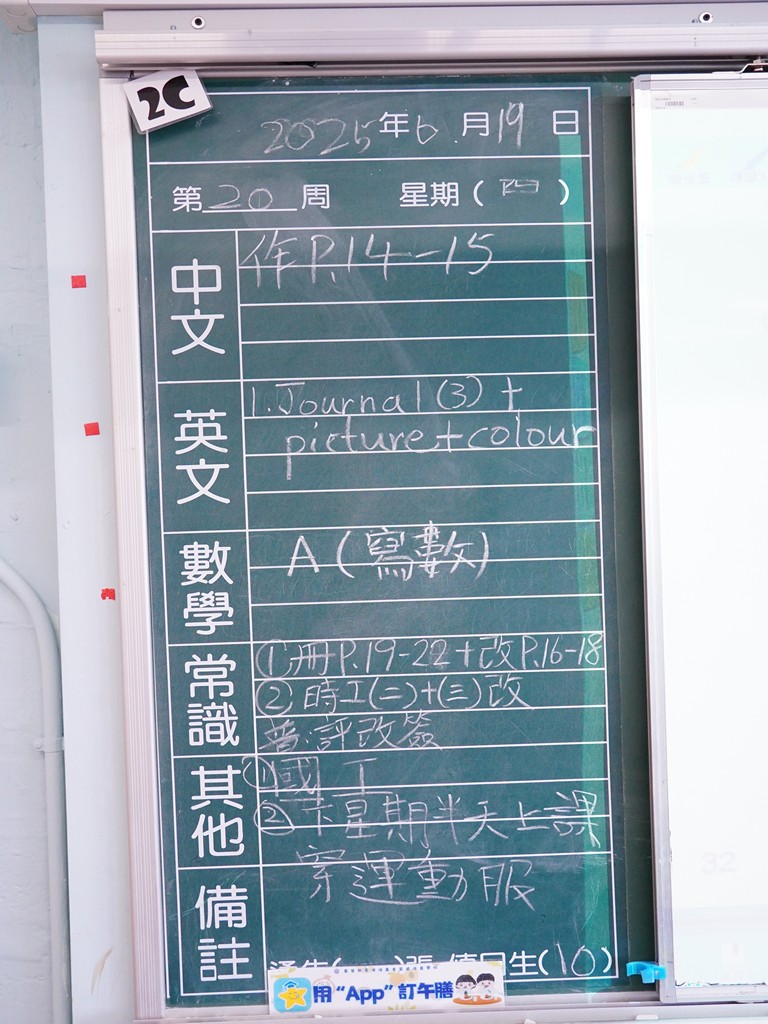 2C
2025年6月19日
第20周 星期(四)
中文
作P.14-15
英文
1. Journal (3) +
picture+colour
數學
A (寫數)
常識
①冊P.19-22+改P.16-18
②時工(二)+(三)改
普:評改簽
其他
①國 T
②下星期半天上課
穿運動服
備註
張 值日生(10)
用“App”訂午膳
32